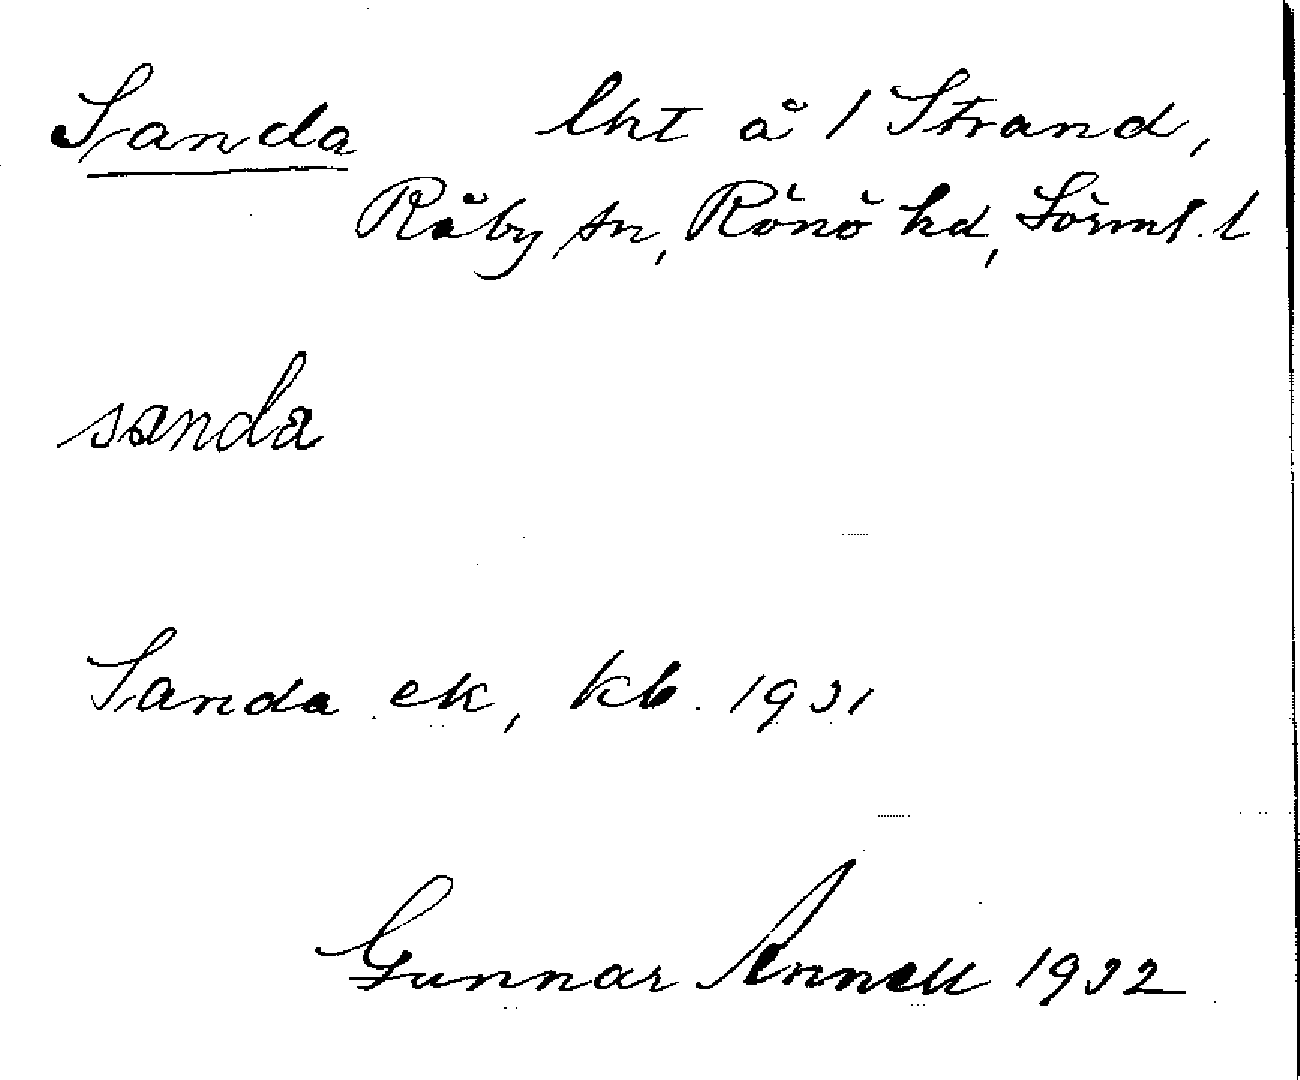 Sanda lht å 1 Strand,
Råby sn, Rönö hd, Sörml. l
sanda
Sanda ek, kb. 1931
Gunnar Annell 1932